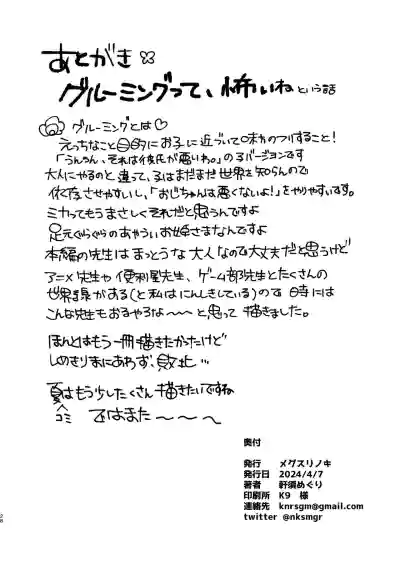 あとがき
グルーミングって、怖いね という話
グルーミングとは♡
えっちなこと目的でお子に近づいて味方のフリすること!
「うんうん、それは彼氏が悪いわ。」の子バージョンです
大人にやるのと違って、子はまだまだ世界を知らんので
依存させやすいし、「おじちゃんは悪くないよ!」をやりやすいです。
ミカってもうまさしくそれだと思うんですよ
足元ぐらぐらのあやういお姫さまなんですよ
本編の先生はまっとうな大人なので大丈夫だと思うけど
アニメ先生や便利屋先生、ゲーム部先生とたくさんの
世界線がある(と私はにんしきしている)ので時には
こんな先生もおるやろな〜〜と思って描きました。
ほんとはもう一冊描きたかったけど
しめきりまにあわず、敗北…
夏コミはもう少したくさん描きたいですね
ではまた〜〜〜
奥付
発行 メグスリノキ
発行日 2024/4/7
著者 軒須めぐり
印刷所 K9 様
連絡先 knrsgm@gmail.com
twitter @nksmgr
28